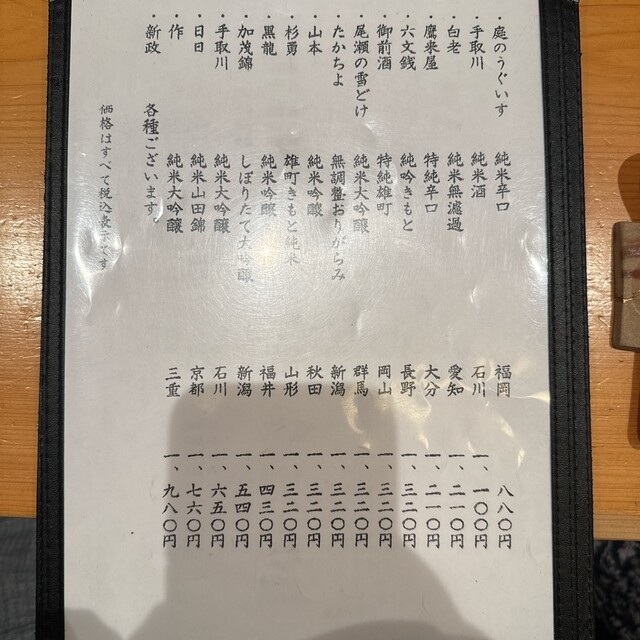 ・庭のうぐいす 純米辛口 福岡 八八〇円
・手取川 純米酒 石川 一、一〇〇円
・白老 純米無濾過 愛知 一、二一〇円
・鷹来屋 特純辛口 大分 一、二一〇円
・六文銭 純吟きもと 長野 一、三二〇円
・御前酒 特純雄町 岡山 一、三二〇円
・尾瀬の雪どけ 純米大吟醸 群馬 一、三二〇円
・たかちよ 無調整おりがらみ 新潟 一、三二〇円
・山本 純米吟醸 秋田 一、三二〇円
・杉勇 雄町きもと純米 山形 一、三二〇円
・黒龍 純米吟醸 福井 一、四三〇円
・加茂錦 しぼりたて大吟醸 新潟 一、五四〇円
・手取川 純米大吟醸 石川 一、六五〇円
・日日 純米山田錦 京都 一、七六〇円
・作 純米大吟醸 三重 一、九八〇円
・新政 各種ございます。
価格はすべて税込表示です